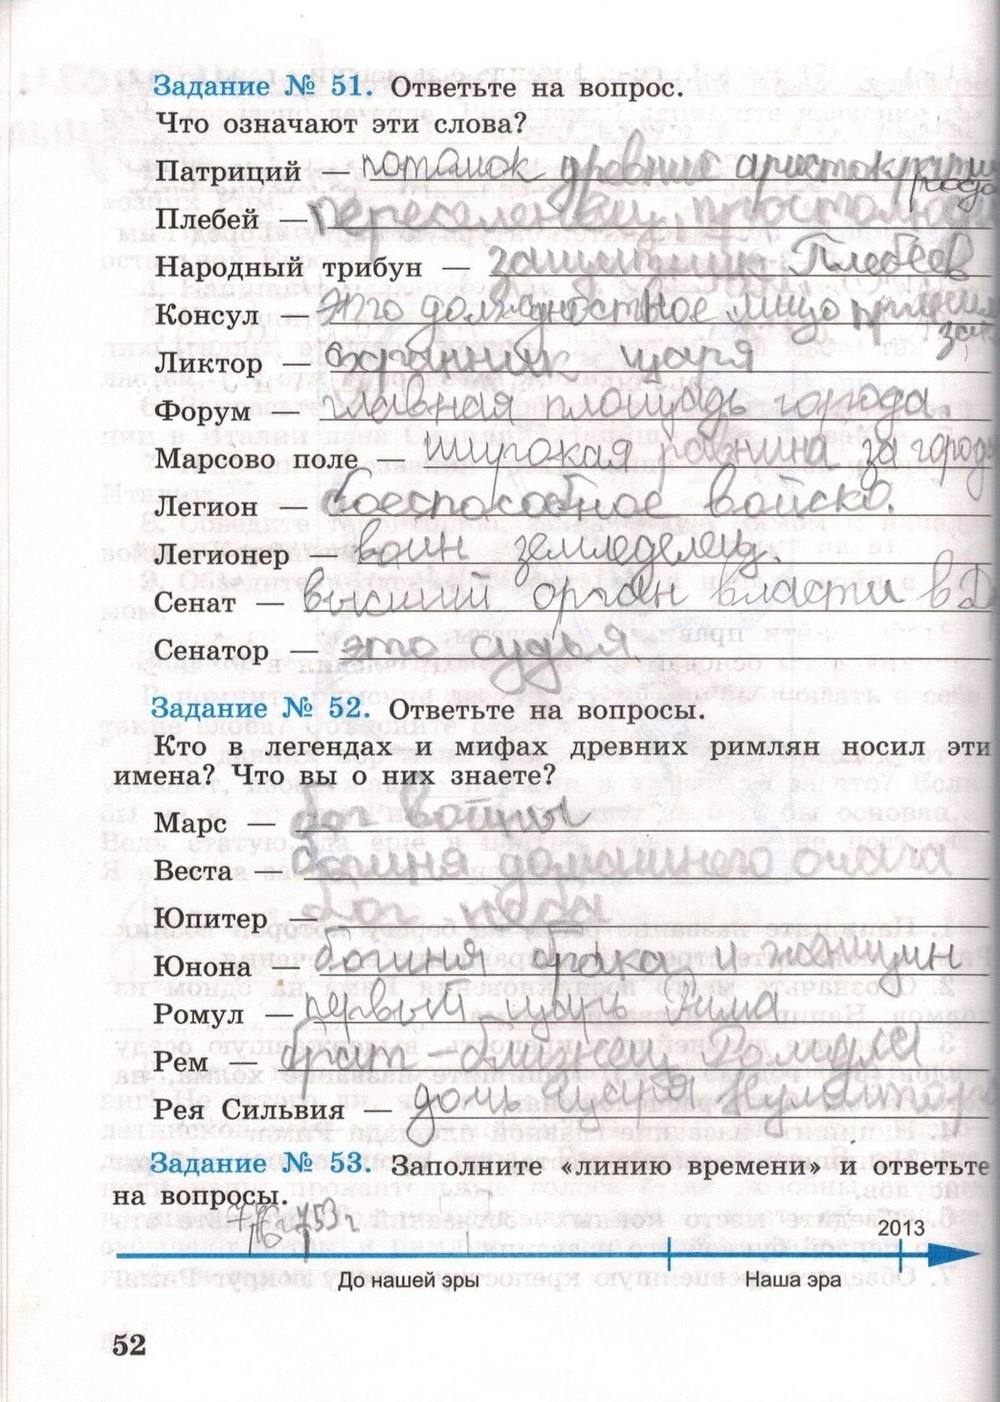 Задание № 51. Ответьте на вопрос.
Что означают эти слова?
Патриций — потомок древние аристократии
рода
Плебей — переселенцы, простолюдин
Народный трибун — защитник Плебеев
Консул — это должностное лицо
Ликтор — охранник царя
Форум — главная площадь города
Марсово поле — широкая равнина за городо
Легион — боеспособное войско.
Легионер — воин земледелец.
Сенат — высший орган власти в Д
Сенатор — это судья
Задание № 52. Ответьте на вопросы.
Кто в легендах и мифах древних римлян носил эти
имена? Что вы о них знаете?
Марс — бог войны
Веста — богиня домашнего очага
Юпитер — Бог неба
Юнона — богиня брака и женщин
Ромул — первый царь Рима
Рем — брат-близнец Ромула
Рея Сильвия — дочь царя Нумитора
Задание № 53. Заполните «линию времени» и ответьте
на вопросы.
753г
2013
До нашей эры Наша эра
52